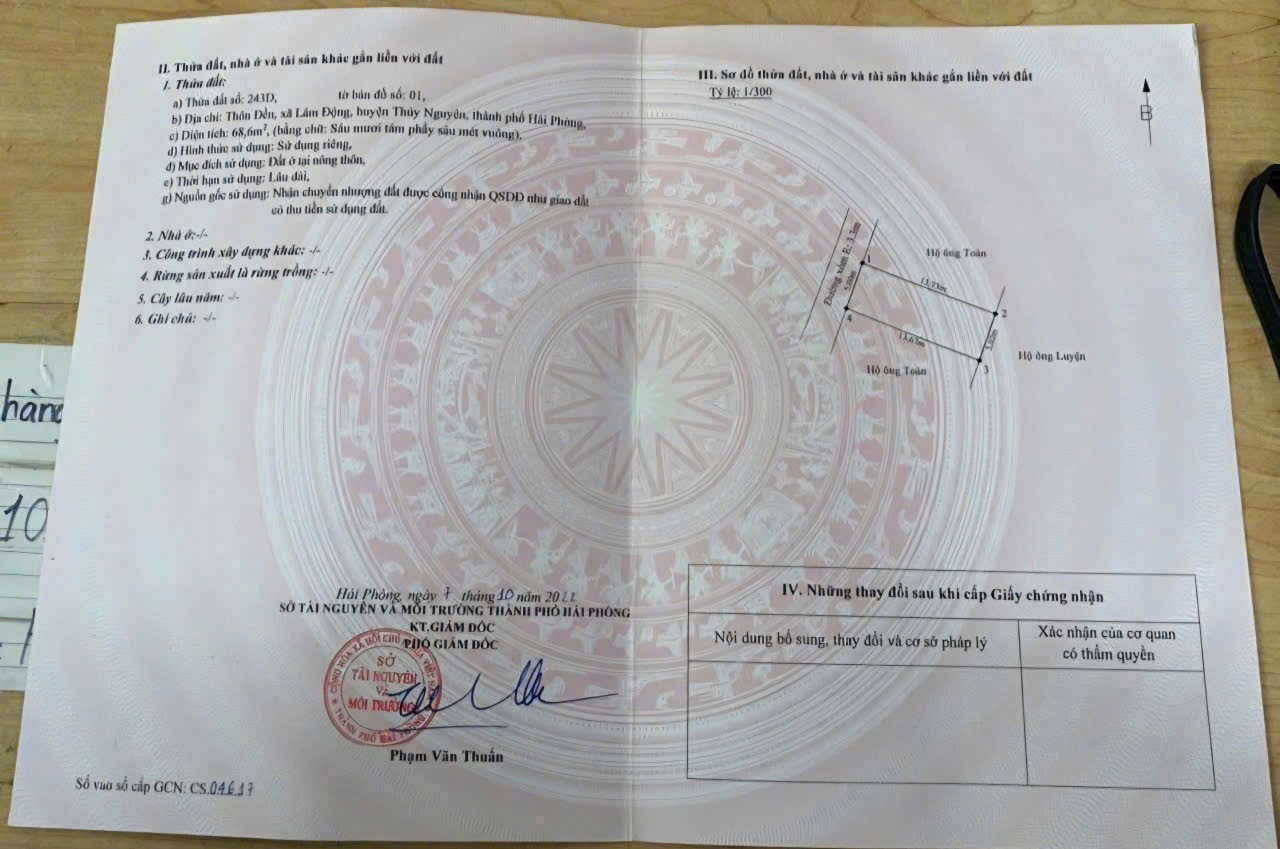 II. Thửa đất, nhà ở và tài sản khác gắn liền với đất
1. Thửa đất:
a) Thửa đất số: 243D, tờ bản đồ số: 01,
b) Địa chỉ: Thôn Đền, xã Lâm Động, huyện Thủy Nguyên, thành phố Hải Phòng,
c) Diện tích: 68,6m², (bằng chữ: Sáu mươi tám phẩy sáu mét vuông),
d) Hình thức sử dụng: Sử dụng riêng,
đ) Mục đích sử dụng: Đất ở tại nông thôn,
e) Thời hạn sử dụng: Lâu dài,
g) Nguồn gốc sử dụng: Nhận chuyển nhượng đất được công nhận QSDĐ như giao đất
có thu tiền sử dụng đất.
2. Nhà ở:-/-
3. Công trình xây dựng khác: -/-
4. Rừng sản xuất là rừng trồng: -/-
5. Cây lâu năm: -/-
6. Ghi chú: -/-
Hải Phòng, ngày 7 tháng 10 năm 2022
SỞ TÀI NGUYÊN VÀ MÔI TRƯỜNG THÀNH PHỐ HẢI PHÒNG
KT.GIÁM ĐỐC
PHÓ GIÁM ĐỐC
SỞ
TÀI NGUYÊN
VÀ
MÔI TRƯỜNG
THÀNH PHỐ HẢI PHÒNG
Phạm Văn Thuấn
Số vào sổ cấp GCN: CS.04617
III. Sơ đồ thửa đất, nhà ở và tài sản khác gắn liền với đất
Tỷ lệ: 1/300
B
Hộ ông Toàn
Đường xóm R: 3.3m
1
13,73m
5.00m
2
4
13,63m
3
Hộ ông Luyện
Hộ ông Toàn
IV. Những thay đổi sau khi cấp Giấy chứng nhận
Nội dung bổ sung, thay đổi và cơ sở pháp lý
Xác nhận của cơ quan
có thẩm quyền
hàng
10